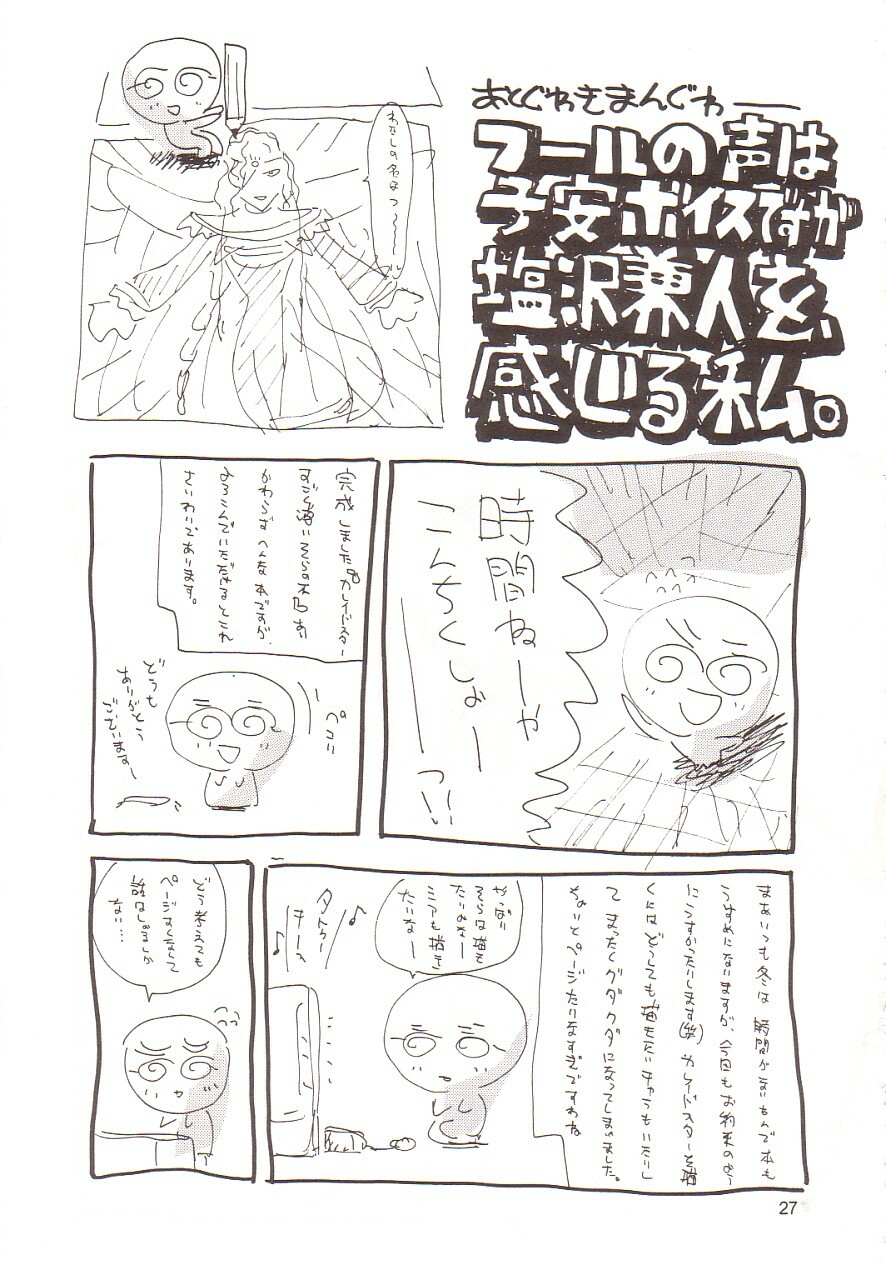 あとぐわきまんぐわ――
フールの声は
子安ボイスですが
塩沢兼人を、
感じる私。
わたしの名はっ〜〜〜
時間ねーや
こんちくしょー
――っ!!
完成しましたカレイドスター
すごく薄い
かわらずへんな本ですが、
よろこんでいただけるとこれ
さいわいであります。
ペコリ
どうも
ありがとう
ございますー
まあいつも冬は時間がないもんで本も
うすめになりますが、今回もお約束のよう
にうすかったりします(笑)カレイドスターを描
くにはどうしても描きたいキャラもいたりし
てまったくグダグダになってしまいました。
ちょいとページたりなすぎですわね
やっぱり
そらは描き
たいわなー
ミアも描き
たいなー
♪
♪
どう考えても
ページすくなくて
話はしょるしか
ない…
27